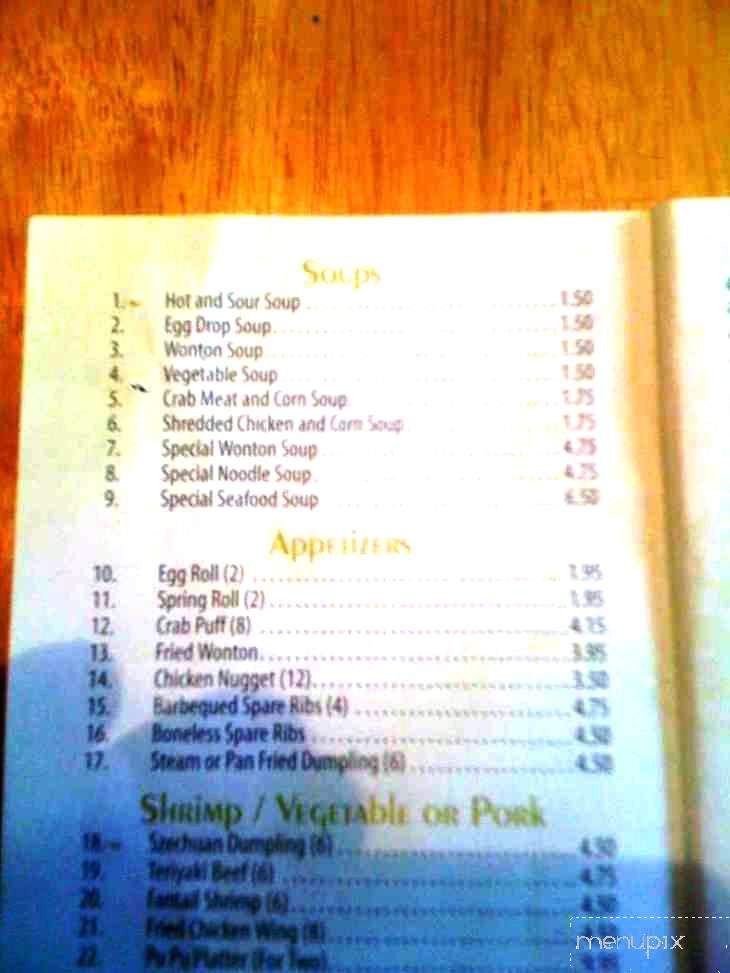 Soups
1. Hot and Sour Soup 1.50
2. Egg Drop Soup 1.50
3. Wonton Soup 1.50
4. Vegetable Soup 1.50
5. Crab Meat and Corn Soup 1.75
6. Shredded Chicken and Corn Soup 1.75
7. Special Wonton Soup 4.75
8. Special Noodle Soup 4.75
9. Special Seafood Soup 6.50
Appetizers
10. Egg Roll (2) 1.95
11. Spring Roll (2) 1.95
12. Crab Puff (8)
13. Fried Wonton 3.95
14. Chicken Nugget (12) 3.50
15. Barbequed Spare Ribs (4) 4.75
16. Boneless Spare Ribs 4.50
17. Steam or Pan Fried Dumpling (6) 4.50
Shrimp / Vegetable or Pork
18. Szechuan Dumpling (6) 4.50
19. Teriyaki Beef (6) 4.75
20. Fantail Shrimp (6) 4.50
21. Fried Chicken Wing (8)
22. Pu Pu Platter (For Two)
menupix